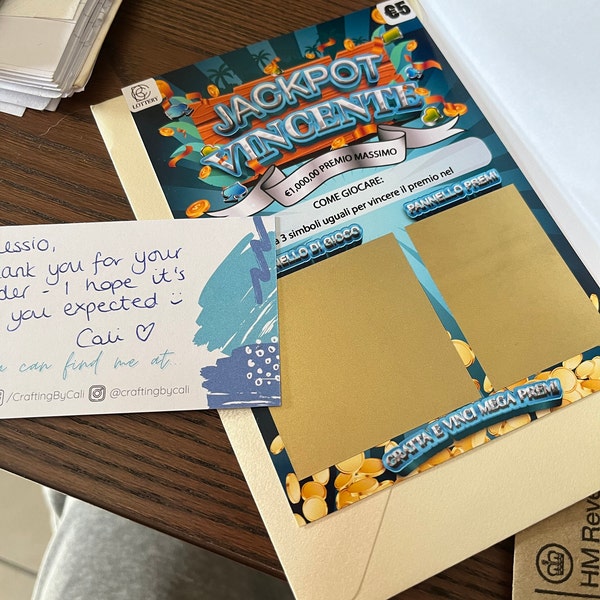 €5
LOTTERY
JACKPOT
VINCENTE
€1,000.00 PREMIO MASSIMO
COME GIOCARE:
3 simboli uguali per vincere il premio nel
PANNELLO DI GIOCO
PANNELLO PREMI
GRATTA E VINCI MEGA PREMI
essio,
ank you for your
der - I hope it's
you expected :)
Cali ♡
can find me at
/CraftingByCali @craftingbycali
HM Reve